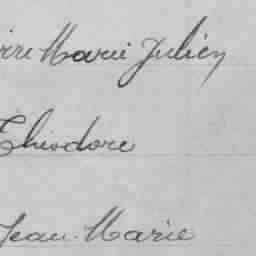 irre Marie Julien
Théodore
Jean-Marie